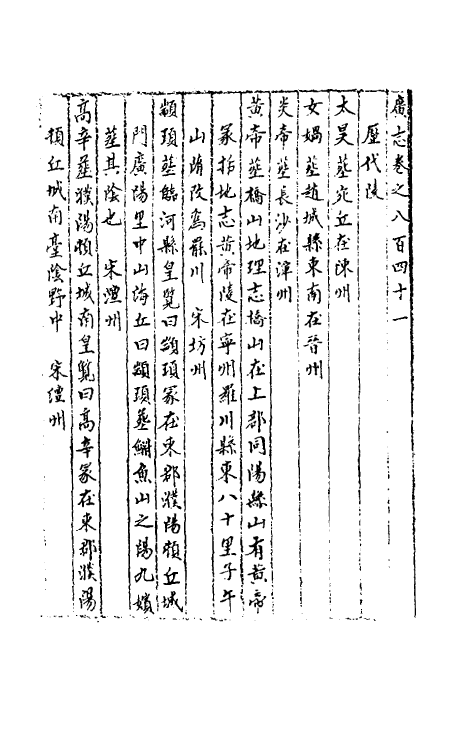 廣志卷之八百四十一
歷代陵
太昊葬宛丘在陳州
女媧葬趙城縣東南在晉州
炎帝葬長沙在潭州
黃帝葬橋山地理志橋山在上郡同陽縣山有黃帝
冢括地志黃帝陵在寧州羅川縣東八十里子午
山隋改為羅川　宋坊州
顓頊葬臨河縣皇覽曰顓頊冢在東郡濮陽頓丘城
門廣陽里中山海丘曰顓頊葬鮒魚山之陽九嬪
葬其陰也　宋澶州
高辛葬濮陽頓丘城南皇覽曰高辛冢在東郡濮陽
頓丘城南臺陰野中　宋澶州